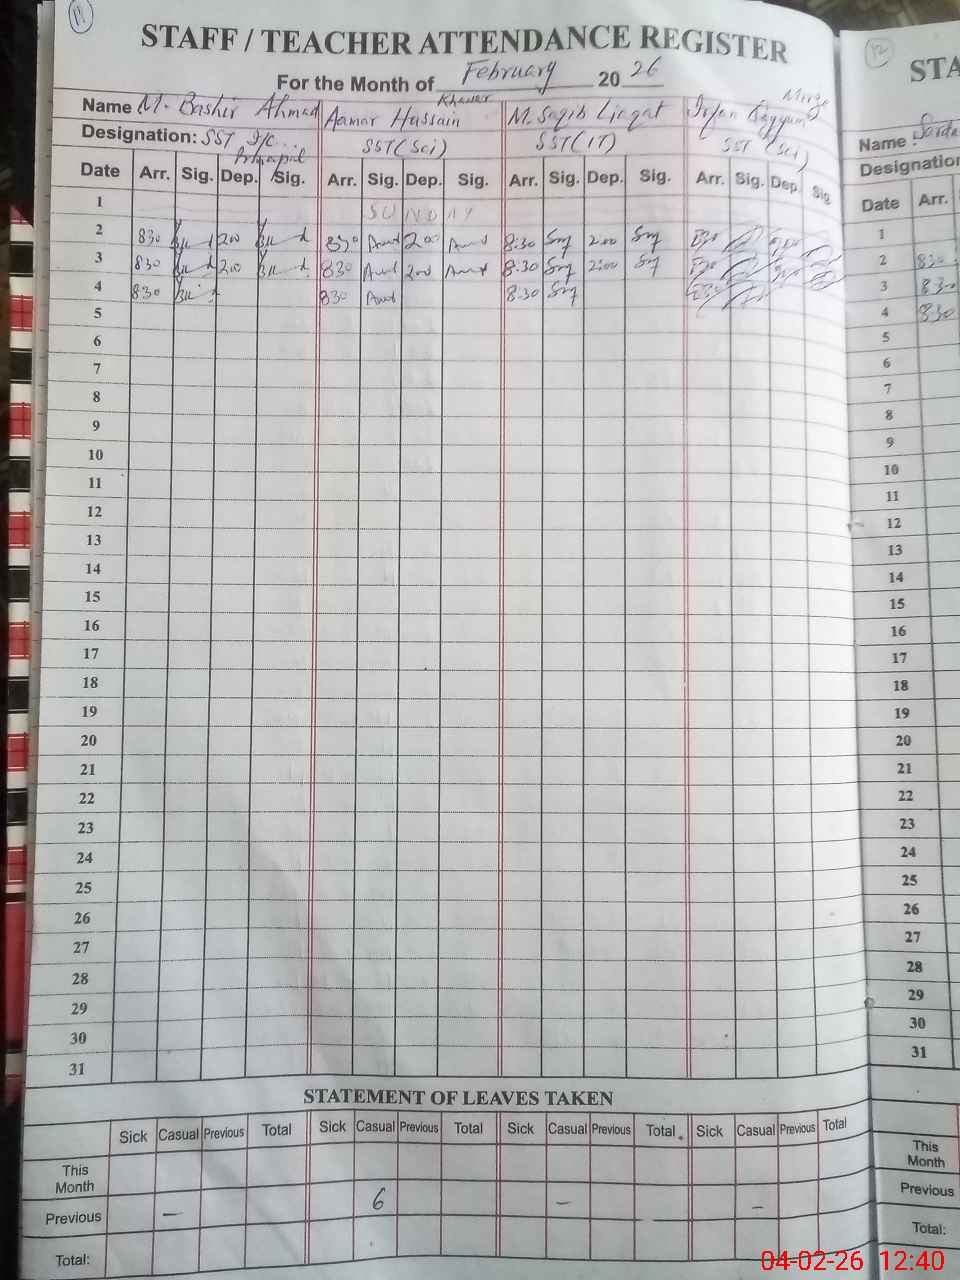 11
STAFF / TEACHER ATTENDANCE REGISTER
For the Month of February 2026
Name M. Bashir Ahmad Aamar Hussain Khawar M. Saqib Liaqat Irfan Qayyum Mirza
Designation: SST I/C Principal SST (Sci) SST (IT) SST (Sci)
Date Arr. Sig. Dep. Sig. Arr. Sig. Dep. Sig. Arr. Sig. Dep. Sig. Arr. Sig. Dep. Sig
1 SUNDAY
2 830 200 830 200 8:30 2:00 830
3 830 200 830 200 8:30 2:00 830
4 830 830 8:30 830
5
6
7
8
9
10
11
12
13
14
15
16
17
18
19
20
21
22
23
24
25
26
27
28
29
30
31
STATEMENT OF LEAVES TAKEN
Sick Casual Previous Total Sick Casual Previous Total Sick Casual Previous Total Sick Casual Previous Total
This Month
Previous – 6 – –
Total:
12
STA
Name :
Designation
Date Arr.
1
2 830
3 830
4 830
5
6
7
8
9
10
11
12
13
14
15
16
17
18
19
20
21
22
23
24
25
26
27
28
29
30
31
This Month
Previous
Total:
04-02-26 12:40